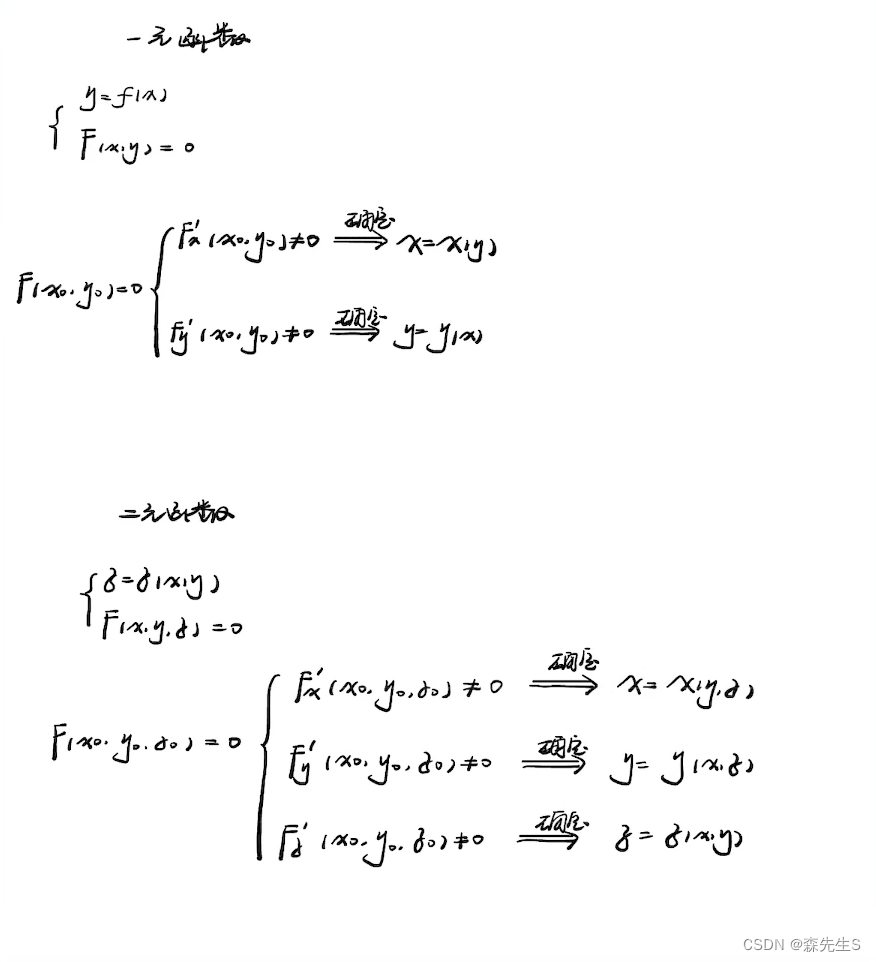 一元函数
y=f(x)
F(x,y)=0
F(x₀,y₀)=0
F'ₓ(x₀,y₀)≠0 确定⟹ x=x(y)
F'y(x₀,y₀)≠0 确定⟹ y=y(x)
二元函数
z=z(x,y)
F(x,y,z)=0
F(x₀,y₀,z₀)=0
F'ₓ(x₀,y₀,z₀)≠0 确定⟹ x=x(y,z)
F'y(x₀,y₀,z₀)≠0 确定⟹ y=y(x,z)
F'z(x₀,y₀,z₀)≠0 确定⟹ z=z(x,y)
CSDN @森先生S